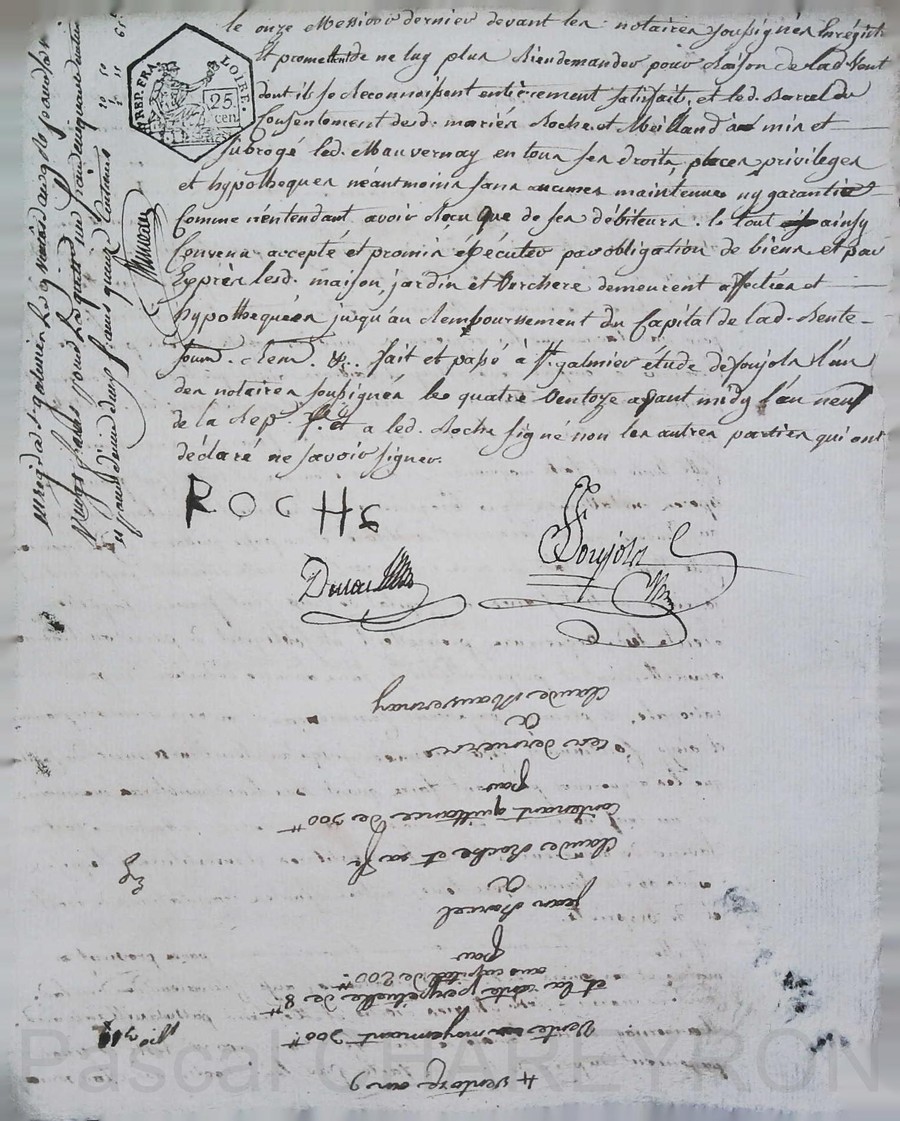 le onze Messidor dernier devant les notaires soussignés Enregistré
Et promettent de ne luy plus Rien demander pour Raison de lad. Vent
dont ils se Reconnoissent entièrement satisfait, et led. Barcel du
Consentement desd. mariés Roche et Meilland a mis et
subrogé led. Mauvernay en tous ses droits, places privileges
et hypotheques néantmoins sans aucunes maintenue ny garantie
Comme n'entendant avoir Reçu que de ses débiteurs. le tout ainsy
Convenu accepté et promis éxécuter par obligation de biens et par
Exprès lesd. maison, jardin et Verchere demeurent affectées et
hypothequées jusqu'au Remboursement du Capital de lad. Rente
soum. Ren. &. fait et passé à St galmier étude de Soujols l'un
des notaires soussignés le quatre Ventoze avant midy l'an neuf
de la Rep. f. et a led. Roche signé non les autres parties qui ont
déclaré ne savoir signer.
REP. FRA.
LOIRE.
25
cen.
ROCHE
Soujols
4 ventoze an 9
Vente moyennant 300 tt
et la rente perpétuelle de 8 tt
au capital de 200 tt
par
jean Barcel
a
Claude Roche et sa fe
Contenant quittance de 300 tt
par
ces derniers
a
Claude Mauvernay
Pascal CHAREYRON